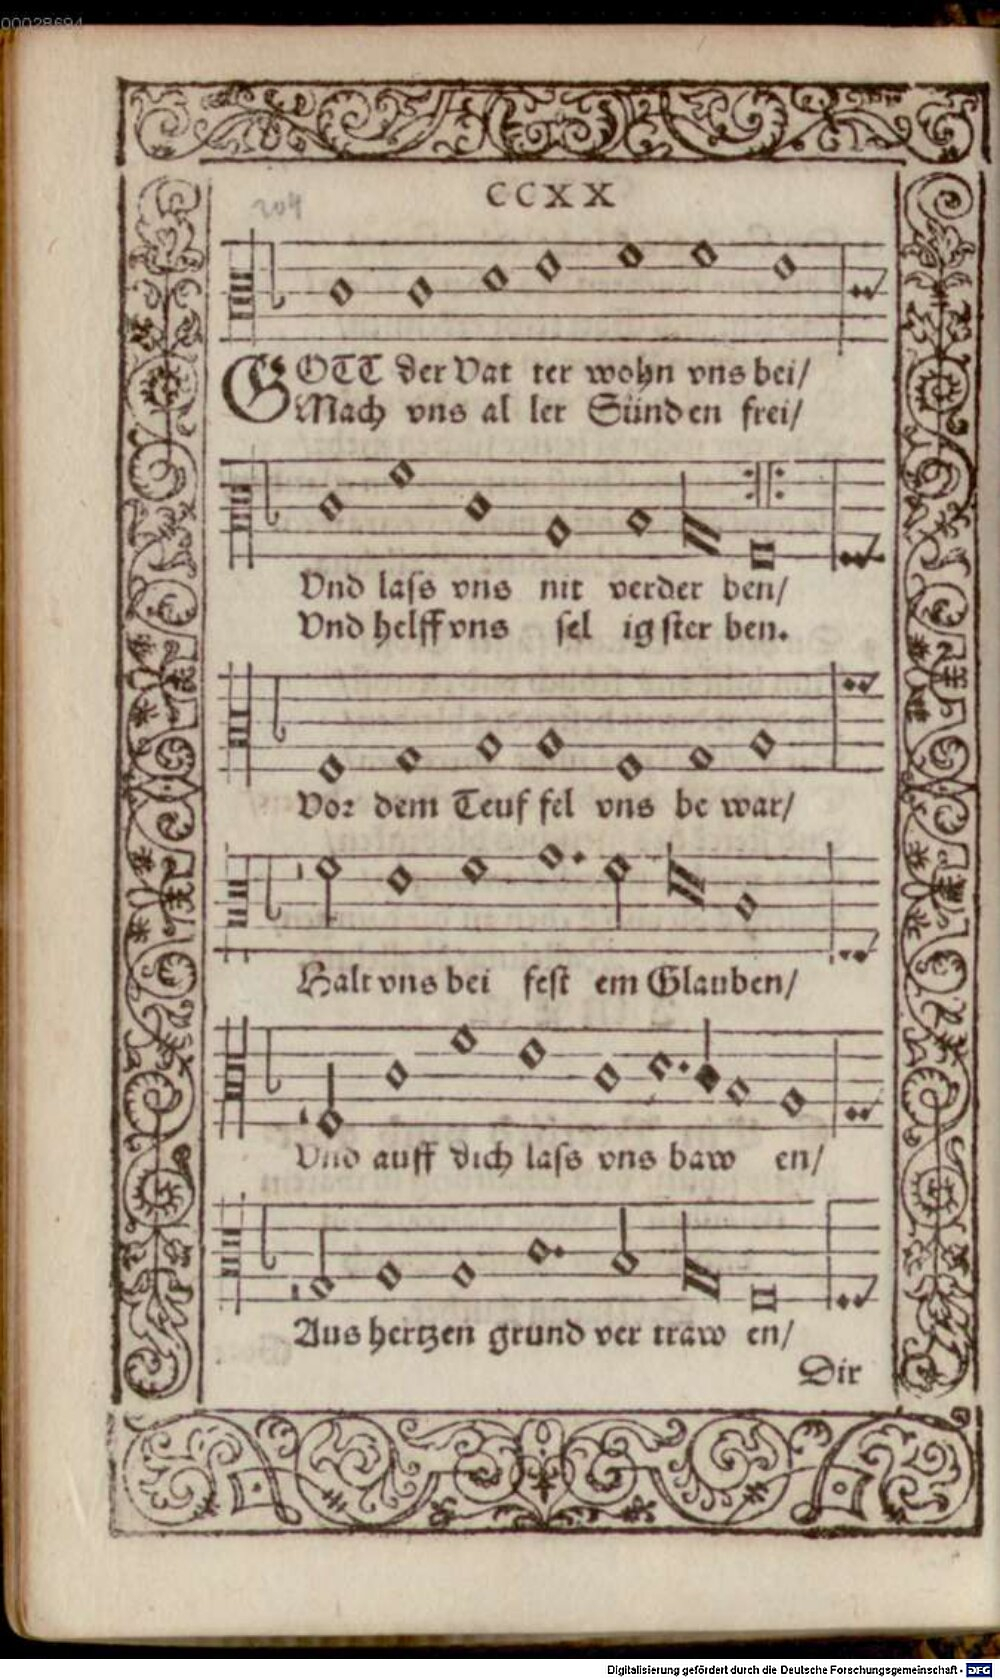 00028694
CCXX
204
GOTT der Vat ter wohn vns bei/
Mach vns al ler Sünden frei/
Vnd lass vns nit verder ben/
Vnd helff vns sel ig ster ben.
Vor dem Teuf fel vns be war/
Halt vns bei fest em Glauben/
Vnd auff dich lass vns baw en/
Aus hertzen grund ver traw en/
Dir
Digitalisierung gefördert durch die Deutsche Forschungsgemeinschaft - DFG